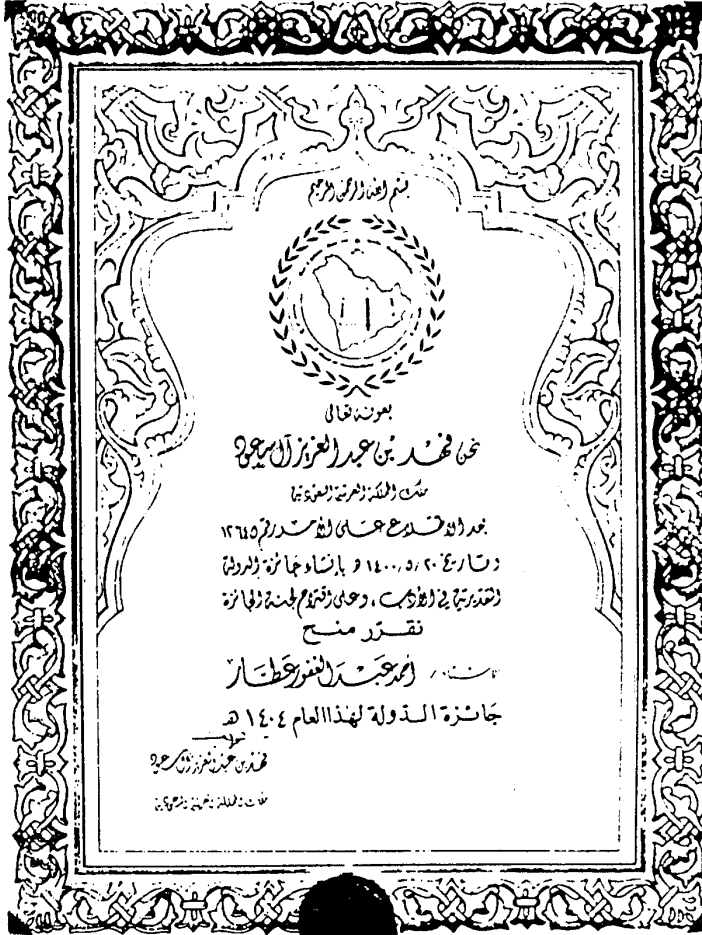 بسم الله الرحمن الرحيم
بعونه تعالى
نحن فهد بن عبد العزيز آل سعود
ملك المملكة العربية السعودية
بعد الاطلاع على الأمر رقم ١٢٦٤٥
وتاريخ ١٤٠٠/٥/٢٠ هـ بإنشاء جائزة الدولة
التقديرية في الأدب، وعلى اقتراح لجنة الجائزة
نقرر منح
الأستاذ / أحمد عبد الغفور عطار
جائزة الدولة لهذا العام ١٤٠٤ هـ
فهد بن عبد العزيز آل سعود
ملك المملكة العربية السعودية